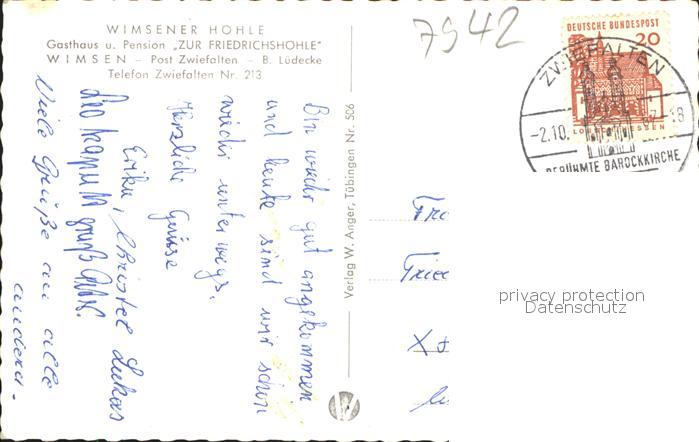 WIMSENER HÖHLE
Gasthaus u. Pension „ZUR FRIEDRICHSHÖHLE"
WIMSEN – Post Zwiefalten – B. Lüdecke
Telefon Zwiefalten Nr. 213
7942
DEUTSCHE BUNDESPOST
20
ZWIEFALTEN
-2.10.
-18
BERÜHMTE BAROCKKIRCHE
Bin wieder gut angekommen
und heute sind wir schon
wieder unterwegs.
Herzliche Grüsse
Erika, Christel Lukas
Viele Grüße an alle
anderen.
Verlag W. Anger, Tübingen Nr. 506
privacy protection
Datenschutz